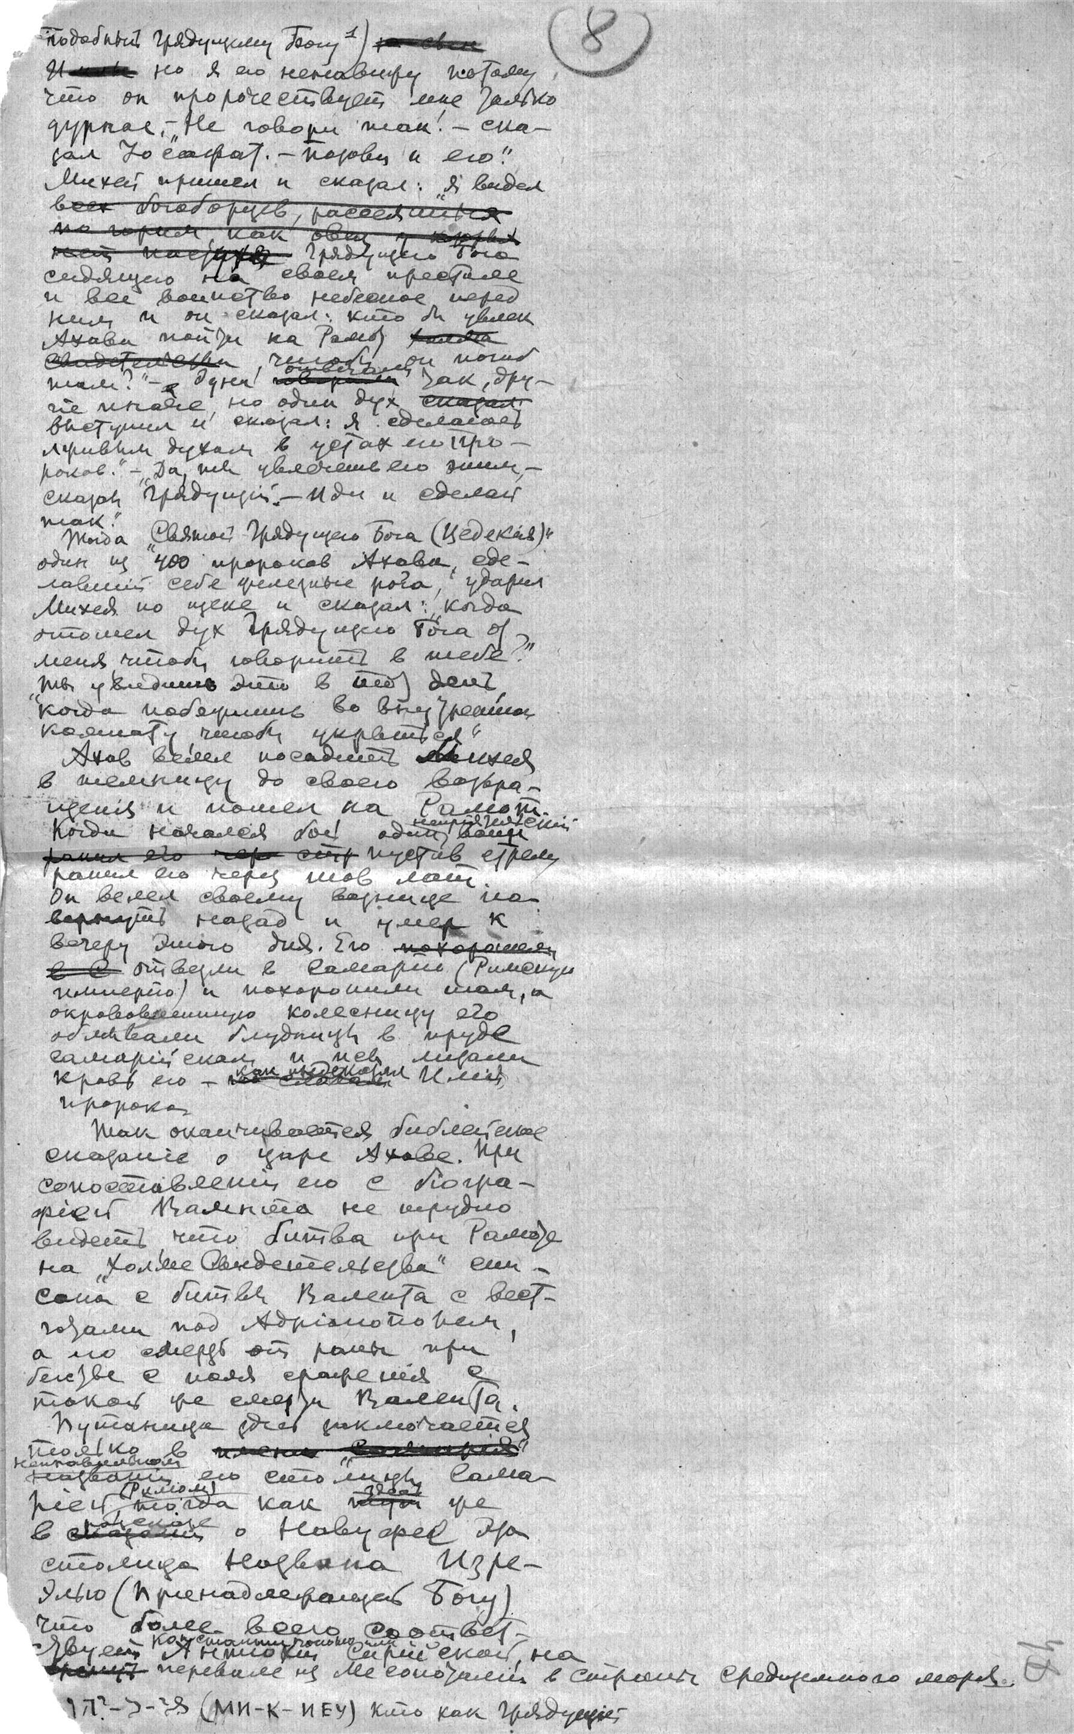 8
подобный Грядущему Богу¹)
но я его ненавижу потому
что он пророчествует мне только
дурное. – Не говори так! – ска-
зал Иосафат. – Позови и его!"
Михей пришел и сказал: "Я видел
всех богоборцев, рассеянных
по горам, как овец у которых
нет пастуха Грядущего Бога
сидящего на своем престоле
и все воинство небесное перед
ним и он сказал: кто бы увлек
Ахава пойти на Рамоѳ холма
свидетельства, чтобы он погиб
там?" – Одни отвечали говорили так, дру-
гіе иначе, но один дух сказал
выступил и сказал: я сделаюсь
лживым духом в устах его про-
роков." – "Да, ты увлечешь его этим, –
сказал Грядущій. – Иди и сделай
так."
Тогда "Святой Грядущего Бога (Цедекія)"
один из 400 пророков Ахава, сде-
лавшій себе железные рога, ударил
Михея по щеке и сказал: "когда
отошел дух Грядущего Бога от
меня чтобы говорить в тебе?"
ты увидишь это в тот день,
"когда побежишь во внутреннюю
комнату чтобы укрыться"
Ахав велел посадить Михея
в темницу до своего возвра-
щенія и пошел на Рамот.
Когда начался бой один непріятельскій воин
ранил его чер стр пустив стрелу
ранил его через шов лат.
Он велел своему вознице по-
вернуть назад и умер к
вечеру этого дня. Его похоронили
в С отвезли в Самарію (Римскую
имперію) и похоронили там, а
окровавленную колесницу его
обмывали блудницы в пруде
самарійском и псы лизали
кровь его – как предсказал по словам Илія
пророка.
Так оканчивается библейское
сказаніе о царе Ахаве. При
сопоставленіи его с біогра-
фіей Валента не трудно
видеть что битва при Рамоѳе
на "Холме Свидетельства" спи-
сана с битвы Валента с вест-
готами под Адріанополем,
а его смерть от раны при
бегстве с поля сраженія с
такой же смерти Валента.
Путаница здесь заключается
только в имени "Самарія"
неправильном названіи его столицы Сама-
ріей (Римом) тогда как здесь же
в сказаніи о Навуфее эта
столица названа Изре-
элью (Принадлежащей Богу)
что более всего соответ-
ствует Константинополю или Антіохіи Сирійской, на
перевале из Месопотаміи в страны Средиземного моря.
(МИ-К-ИЕУ) Кто как Грядущій